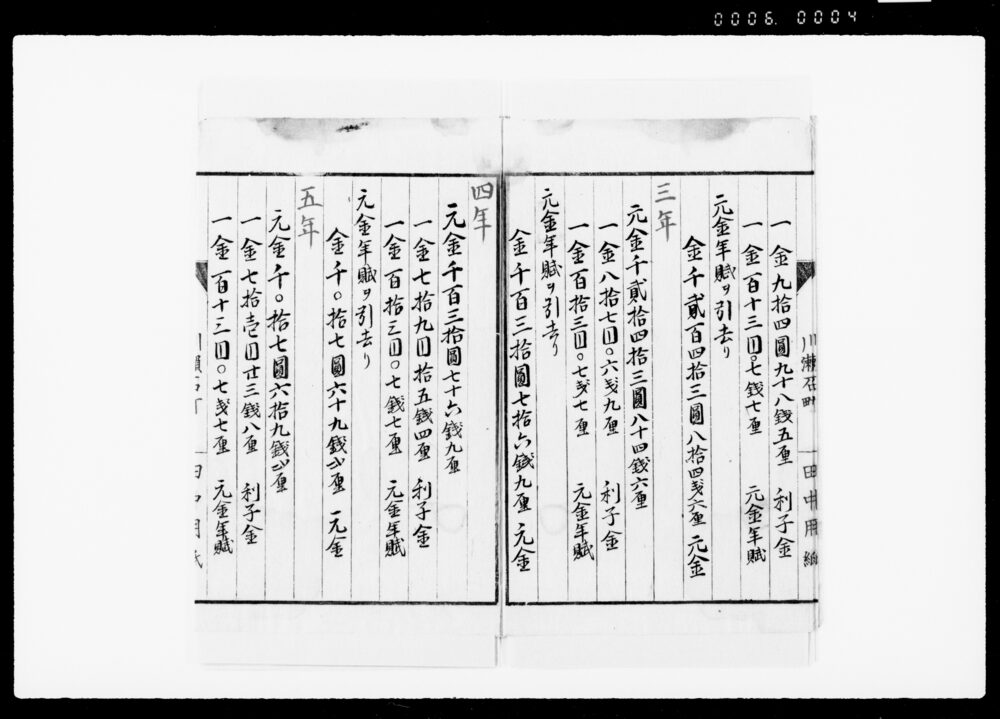 0006. 0004
川瀬石町
田中用紙
一金九拾四圓九十八錢五厘 利子金
一金百十三円〇七錢七厘 元金年賦
元金年賦ヲ引去り
金千貳百四拾三圓八拾四戋六厘 元金
三年
元金千貳拾四拾三圓八十四錢六厘
一金八拾七円〇六戋九厘 利子金
一金百拾三円〇七戋七厘 元金年賦
元金年賦ヲ引去り
金千百三拾圓七拾六錢九厘 元金
四年
元金千百三拾圓七十六錢九厘
一金七拾九円拾五錢四厘 利子金
一金百拾三円〇七錢七厘 元金年賦
元金年賦ヲ引去り
金千〇拾七圓六十九錢弐厘 元金
五年
元金千〇拾七圓六拾九錢弐厘
一金七拾壱円廿三錢八厘 利子金
一金百十三円〇七戋七厘 元金年賦